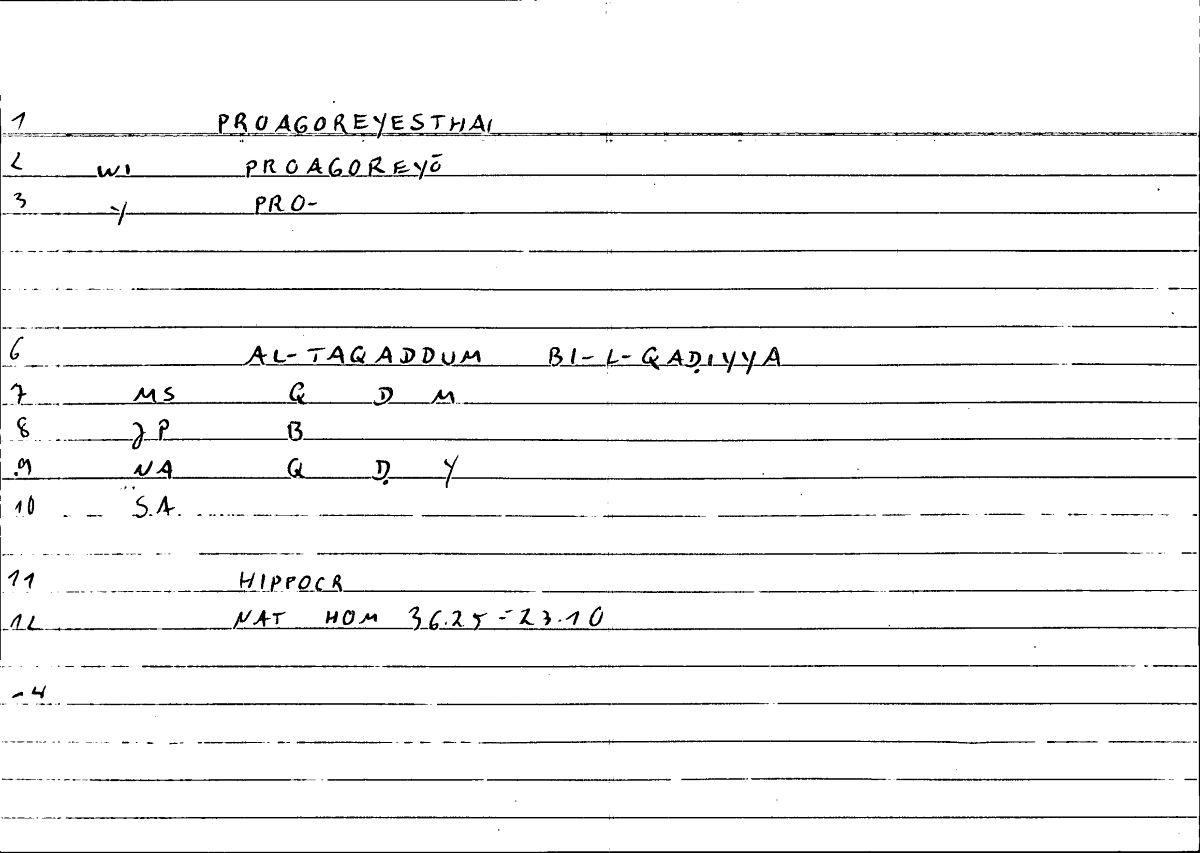 1 PROAGOREYESTHAI
2 WI PROAGOREYŌ
3 PRO-
6 AL-TAQADDUM BI-L-QAḌIYYA
7 MS Q D M
8 JP B
9 NA Q Ḍ Y
10 S.A.
11 HIPPOCR
12 NAT HOM 36.25=23.10
14